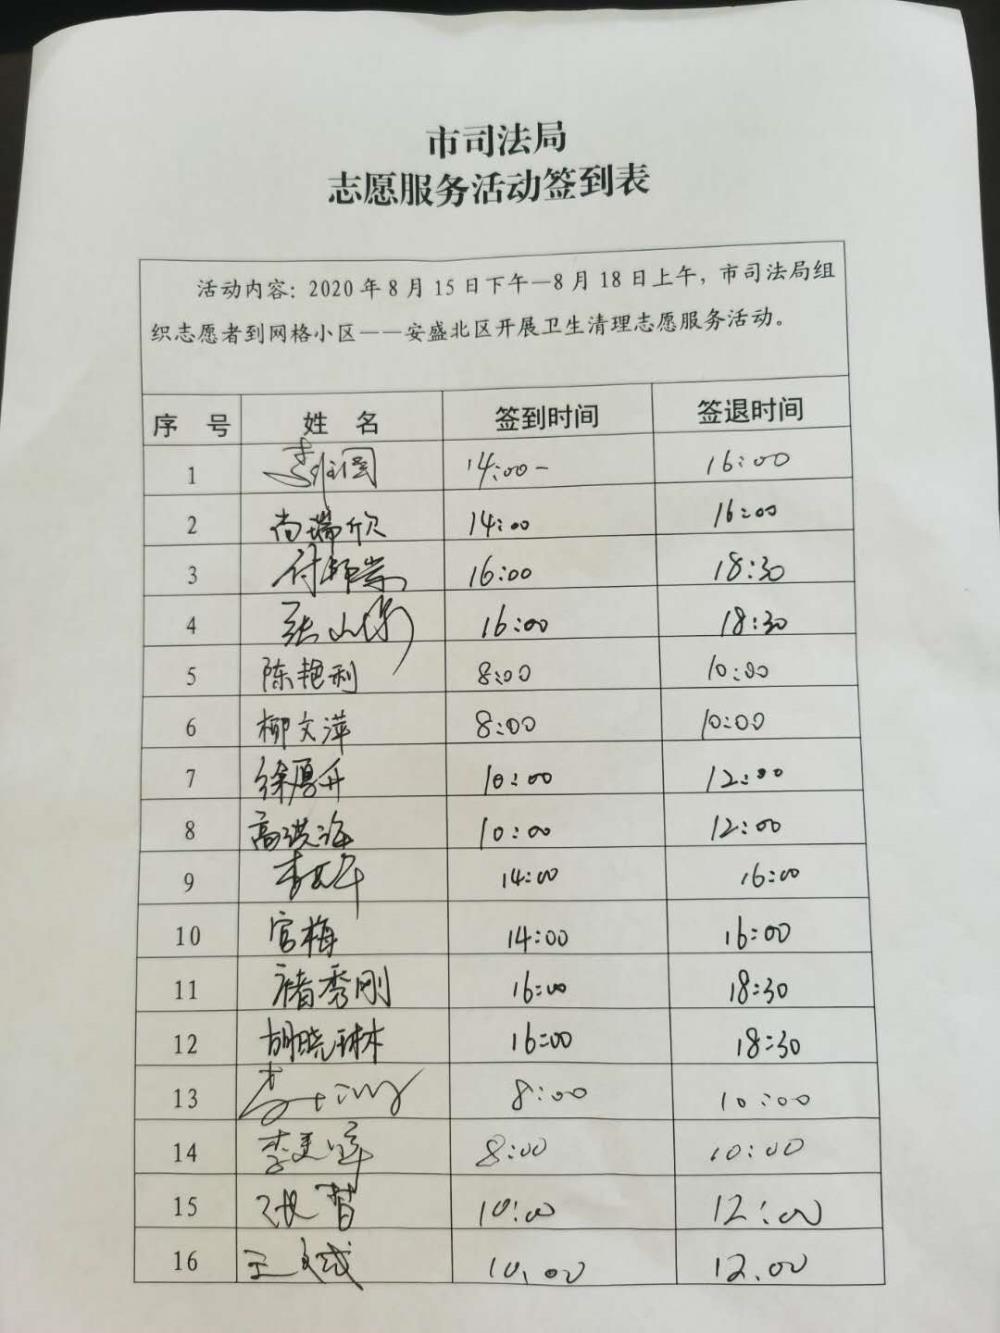 市司法局
志愿服务活动签到表
活动内容：2020年8月15日下午—8月18日上午，市司法局组
织志愿者到网格小区——安盛北区开展卫生清理志愿服务活动。
序 号 姓 名 签到时间 签退时间
1 14:00- 16:00
2 尚瑞欣 14:00 16:00
3 16:00 18:30
4 16:00 18:30
5 陈艳利 8:00 10:00
6 柳文萍 8:00 10:00
7 徐勇升 10:00 12:00
8 高洪海 10:00 12:00
9 14:00 16:00
10 官梅 14:00 16:00
11 褚秀刚 16:00 18:30
12 胡晓琳 16:00 18:30
13 8:00 10:00
14 8:00 10:00
15 10:00 12:00
16 10.00 12.00